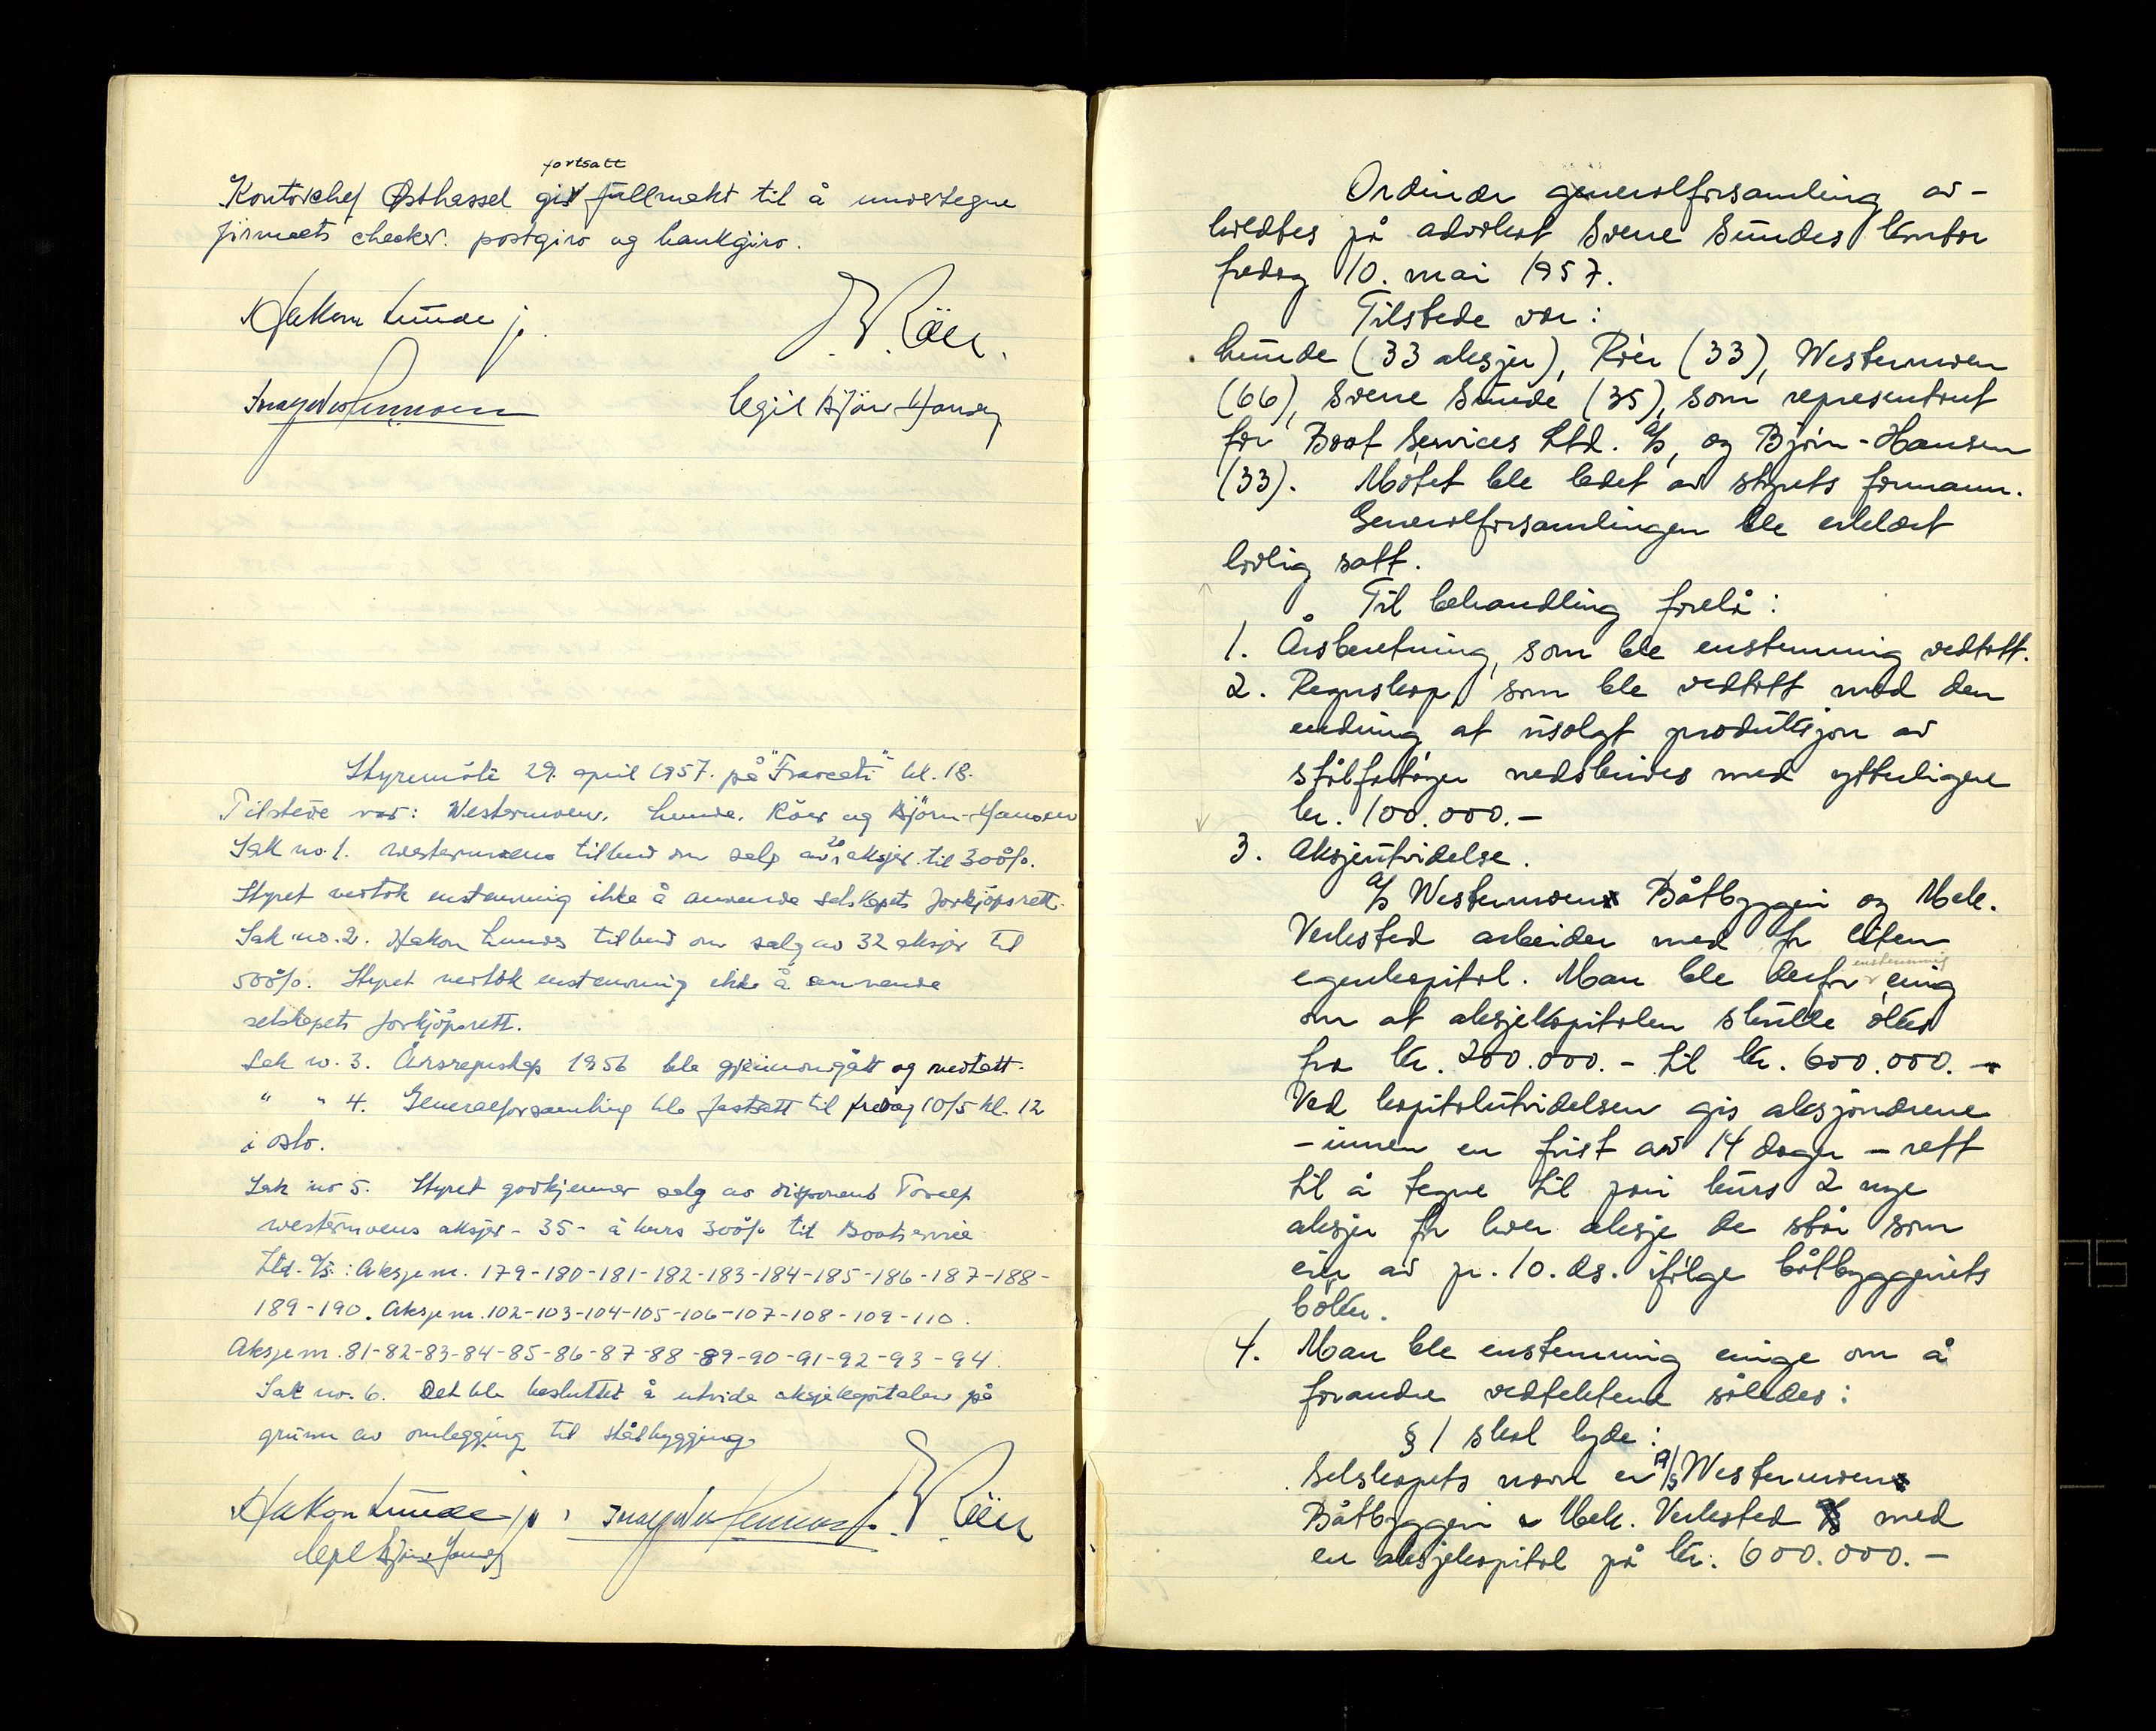 fortsatt
Kontorchef Østhassel gis fullmakt til å undertegne
firmaets checker. postgiro og bankgiro.
Hakon Lunde jr.
Egil Bjørn-Hansen
Styremöte 29. april 1957. på "Frascati" kl. 18.
Tilstede var: Westermoen, Lunde, Röer og Björn-Hansen
Sak no. 1. Westermoens tilbud om salg av 20 aksjer til 300%.
Styret vedtok enstemmig ikke å anvende selskapets forkjöpsrett.
Sak no. 2. Hakon Lundes tilbud om salg av 32 aksjer til
500%. Styret vedtok enstemmig ikke å anvende
selskapets forkjöpsrett.
Sak no. 3. Årsregnskap 1956 ble gjennomgått og vedtatt.
" " 4. Generalforsamling ble fastsatt til fredag 10/5 kl. 12
i Oslo.
Sak no 5. Styret godkjenner salg av disponent Toralf
Westermoens aksjer - 35 - à kurs 300% til Boatservice
Ltd. A/S: Aksje nr. 179-180-181-182-183-184-185-186-187-188-
189-190. Aksje nr. 102-103-104-105-106-107-108-109-110.
Aksje nr. 81-82-83-84-85-86-87-88-89-90-91-92-93-94.
Sak no. 6. Det ble besluttet å utvide aksjekapitalen på
grunn av omlegging til stålbygging.
Hakon Lunde jr.
Egil Bjørn-Hansen
Ordinær generalforsamling av-
holdtes på advokat Sverre Sundes kontor
fredag 10. mai 1957.
Tilstede var:
Lunde (33 aksjer), Röer (33), Westermoen
(66), Sverre Sunde (35), som representant
for Boat Services Ltd. A/S, og Björn-Hansen
(33). Mötet ble ledet av styrets formann.
Generalforsamlingen ble erklært
lovlig satt.
Til behandling forelå:
1. Årsberetning, som ble enstemmig vedtatt.
2. Regnskap, som ble vedtatt med den
endring at usolgt produksjon av
stålfartöyer nedskrives med ytterligere
kr. 100.000.-
3. Aksjeutvidelse.
A/S Westermoen Båtbyggeri og Mek.
Verksted arbeider med for liten
egenkapital. Man ble derfor enstemmig enig
om at aksjekapitalen skulle ökes
fra kr. 200.000.- til kr. 600.000.-
Ved kapitalutvidelsen gis aksjonærene
- innen en frist av 14 dager - rett
til å tegne til pari kurs 2 nye
aksjer for hver aksje de står som
eier av pr. 10. ds. ifölge båtbyggeriets
böker.
4. Man ble enstemmig enige om å
forandre vedtektene således:
§ 1 skal lyde:
Selskapets navn er A/S Westermoen
Båtbyggeri & Mek. Verksted med
en aksjekapital på kr. 600.000.-